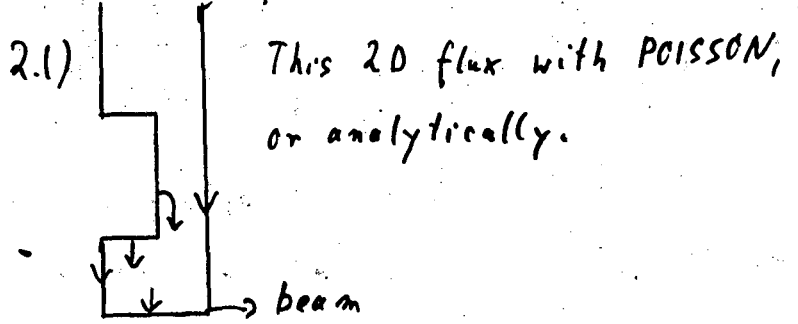 2.1) This 2D flux with POISSON,
or analytically.
beam